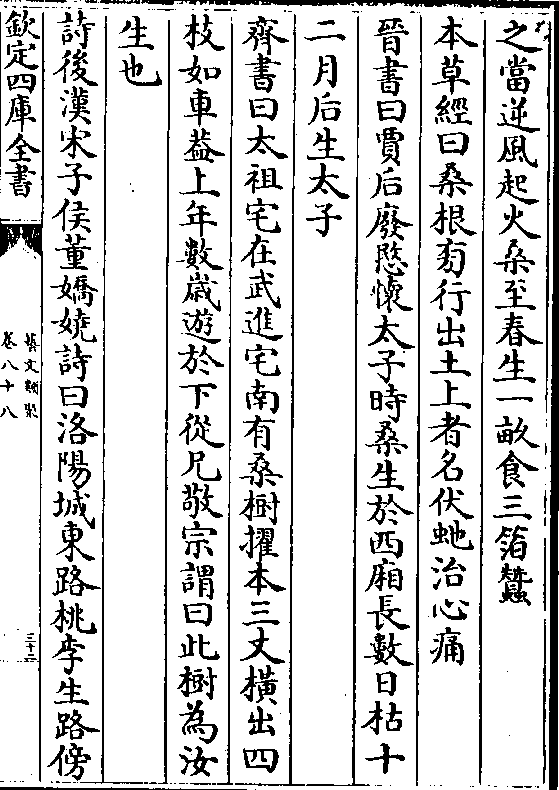 之當逆風起火桑至春生一畝食三箔蠶
本草經曰桑根旁行出土上者名伏虵治心痛
晉書曰賈后廢愍懷太子時桑生於西廂長數日枯十
二月后生太子
齊書曰太祖宅在武進宅南有桑樹擢本三丈橫出四
枝如車葢上年數歳遊於下從兄敬宗謂曰此樹為汝
生也
詩後漢宋子侯董嬌嬈詩曰洛陽城東路桃李生路傍
欽定四庫全書
藝文類聚
卷八十八
三十二